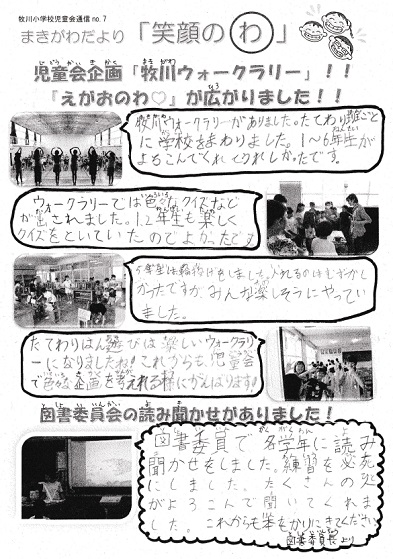 牧川小学校児童会通信 no.7
まきがわだより「笑顔の わ 」
児童会企画「牧川ウォークラリー」！！
『えがおのわ♡』が広がりました！！
牧川ウォークラリーがありました。たてわり班ごと
に学校をまわりました。1～6年生が
よろこんでくれてうれしかったです。
ウォークラリーでは色々なクイズなど
が出されました。1,2年生も楽しく
クイズをといていたのでよかったです
のはむずかし
かったですが、みんな楽しそうにやってい
ました。
たてわりはん遊びは楽しいウォークラリ
ーになりましたね！これからも、児童会
で色々な企画を考えれる様にがんばります！
図書委員会の読み聞かせがありました！
図書委員で各学年に読み
聞かせをしました。練習を必死
にしました。たくさんの
がよろこんで聞いてくれま
した。これからも本をかりにきてください
図書委員長より